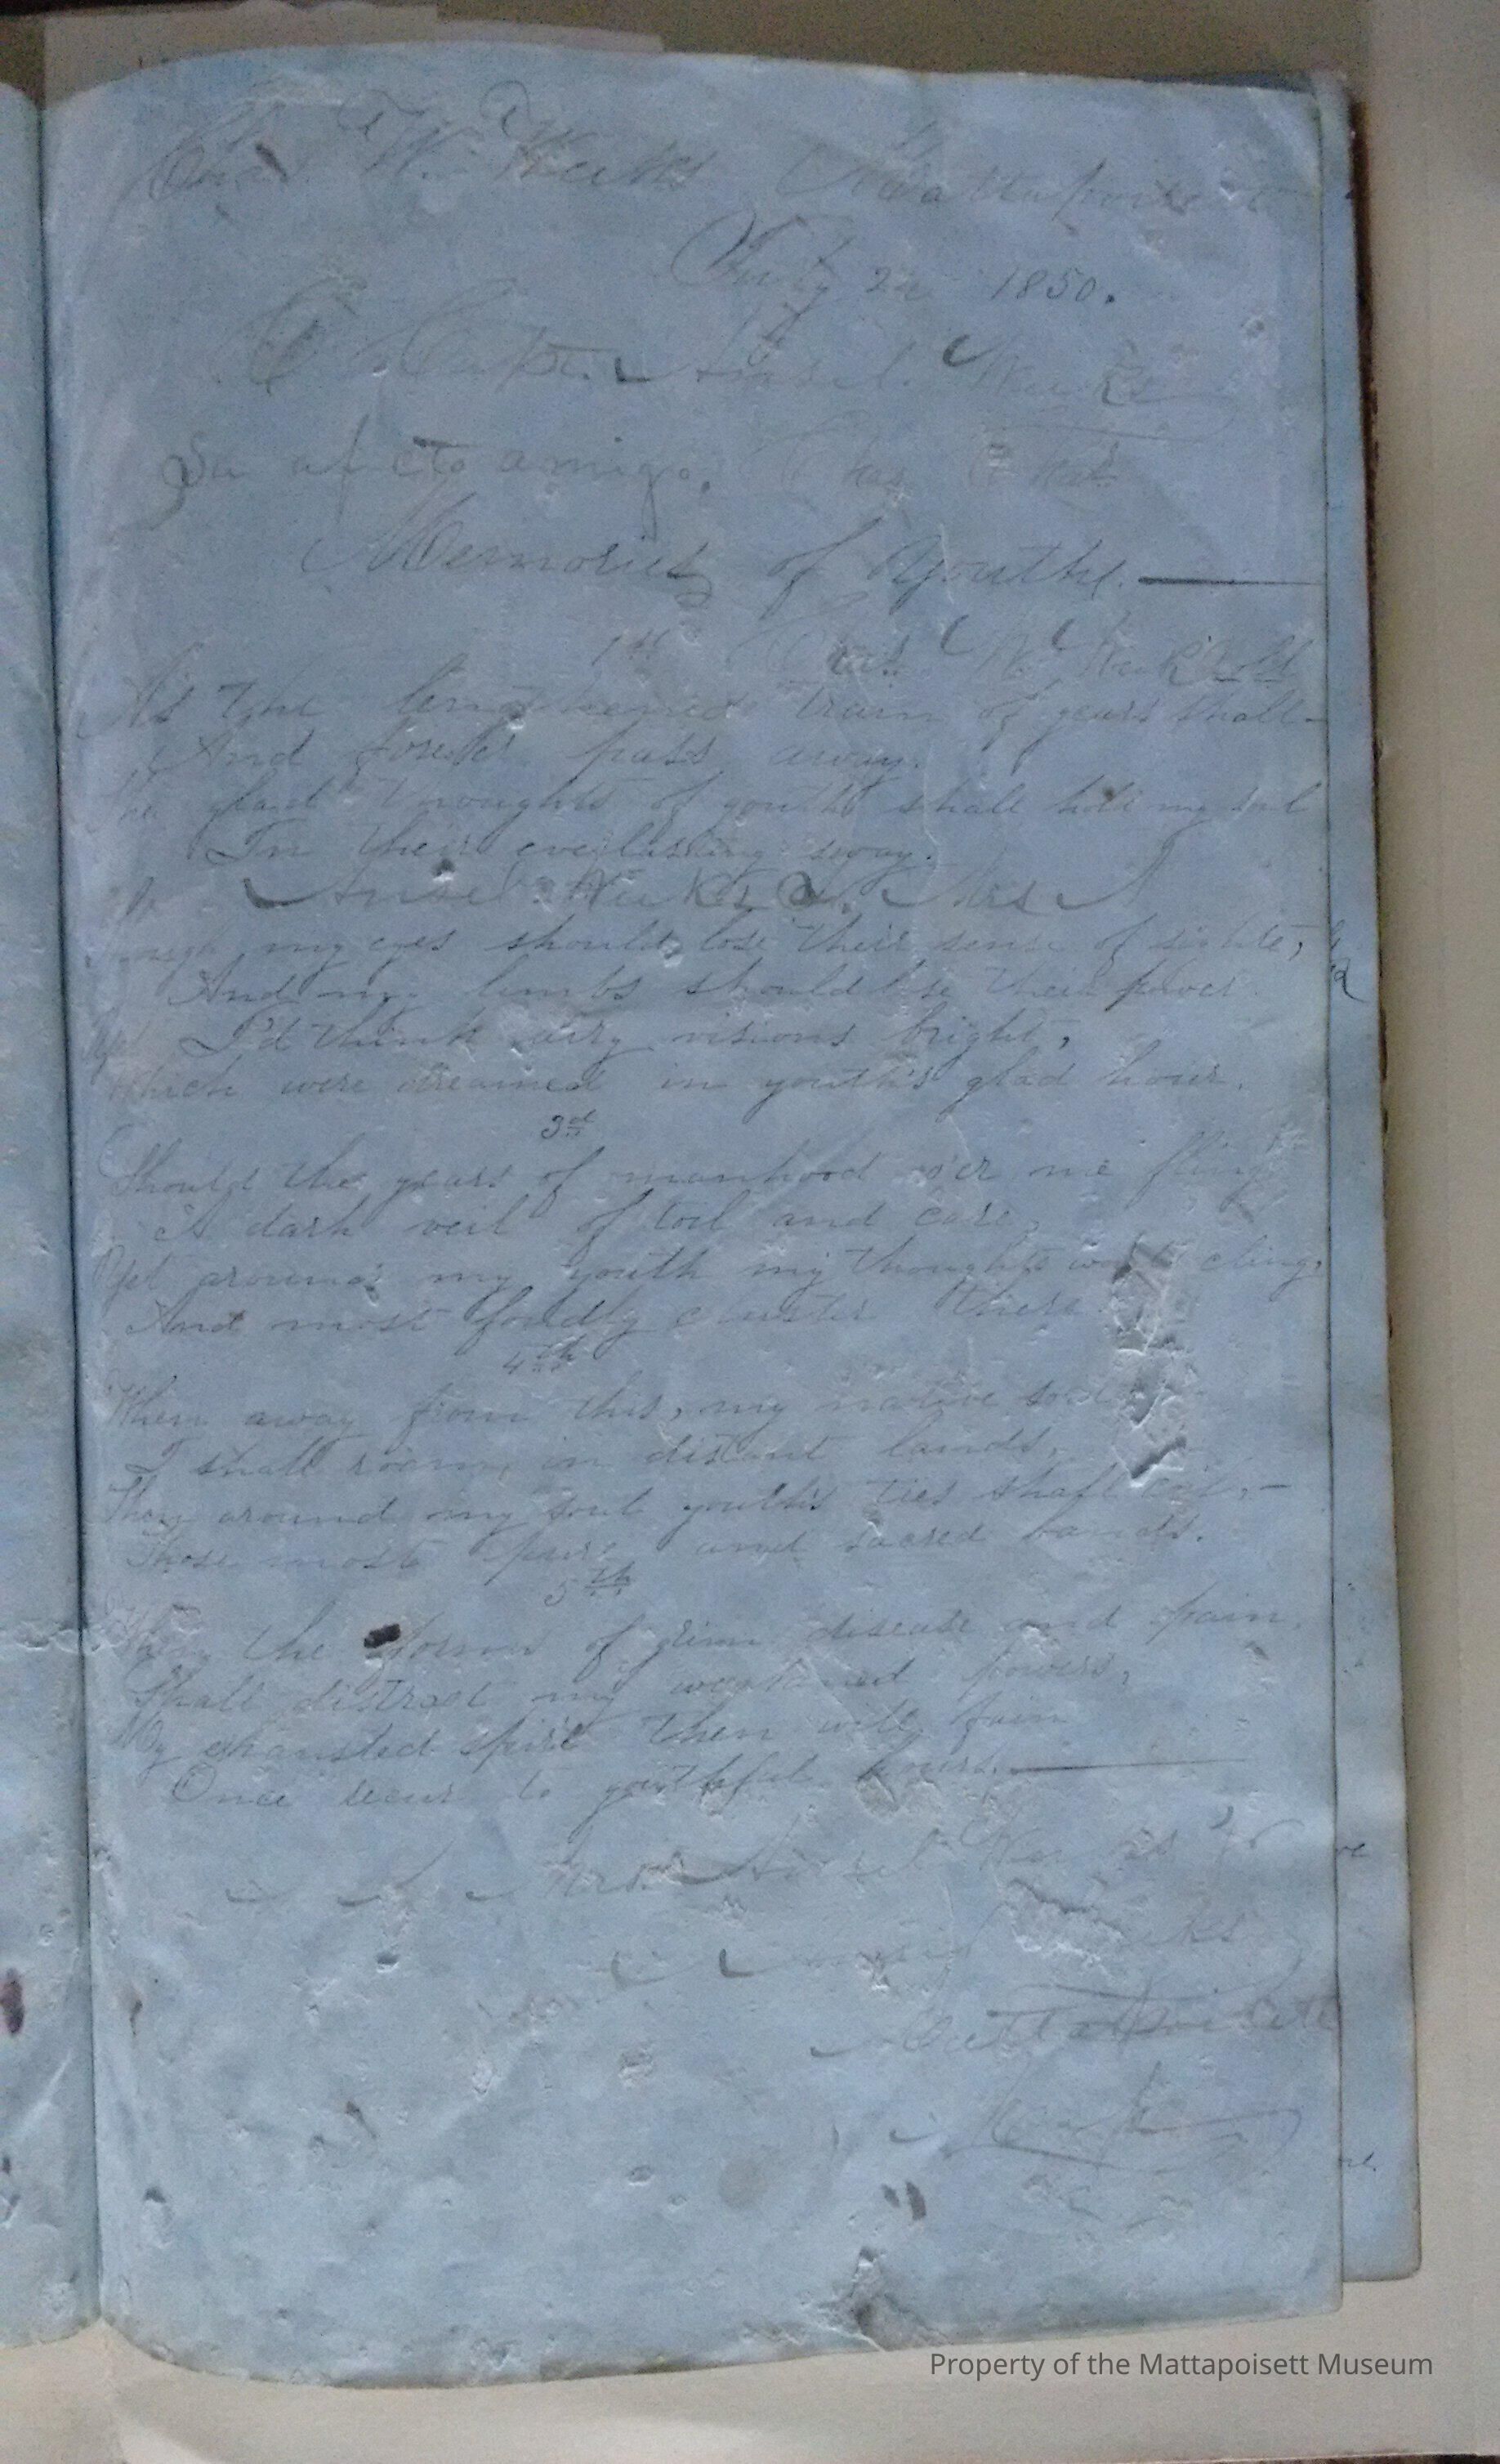 Chas. W. Weeks Mattapoisett
July 1850.
Capt. Ansel Weeks
Su afecto amigo.
Memories of Youth.
1st Chas. W. Weeks
As the lengthened train of years shall
And forever pass away.
The glad thoughts of youth shall hold my soul
In their everlasting sway.
Ansel Weeks Mrs
Though my eyes should lose their sense of sight,
And my limbs should lose their power
Yet I'd think airy visions bright,
Which were dreamed in youth's glad hour.
3d
Should the years of manhood o'er me fling
A dark veil of toil and care,
Yet around my youth my thoughts would cling,
And most fondly cluster there
4th
When away from this, my native soil
I shall roam in distant lands,
Then around my soul youth's ties shall coil,
Those most pure and sacred bands.
5th
When the form of grim disease and pain,
Shall distract my weakened powers,
My exhausted spirit then will fain
Once recur to youthful hours.
Mrs. Ansel Weeks
Weeks
Mattapoisett
Property of the Mattapoisett Museum